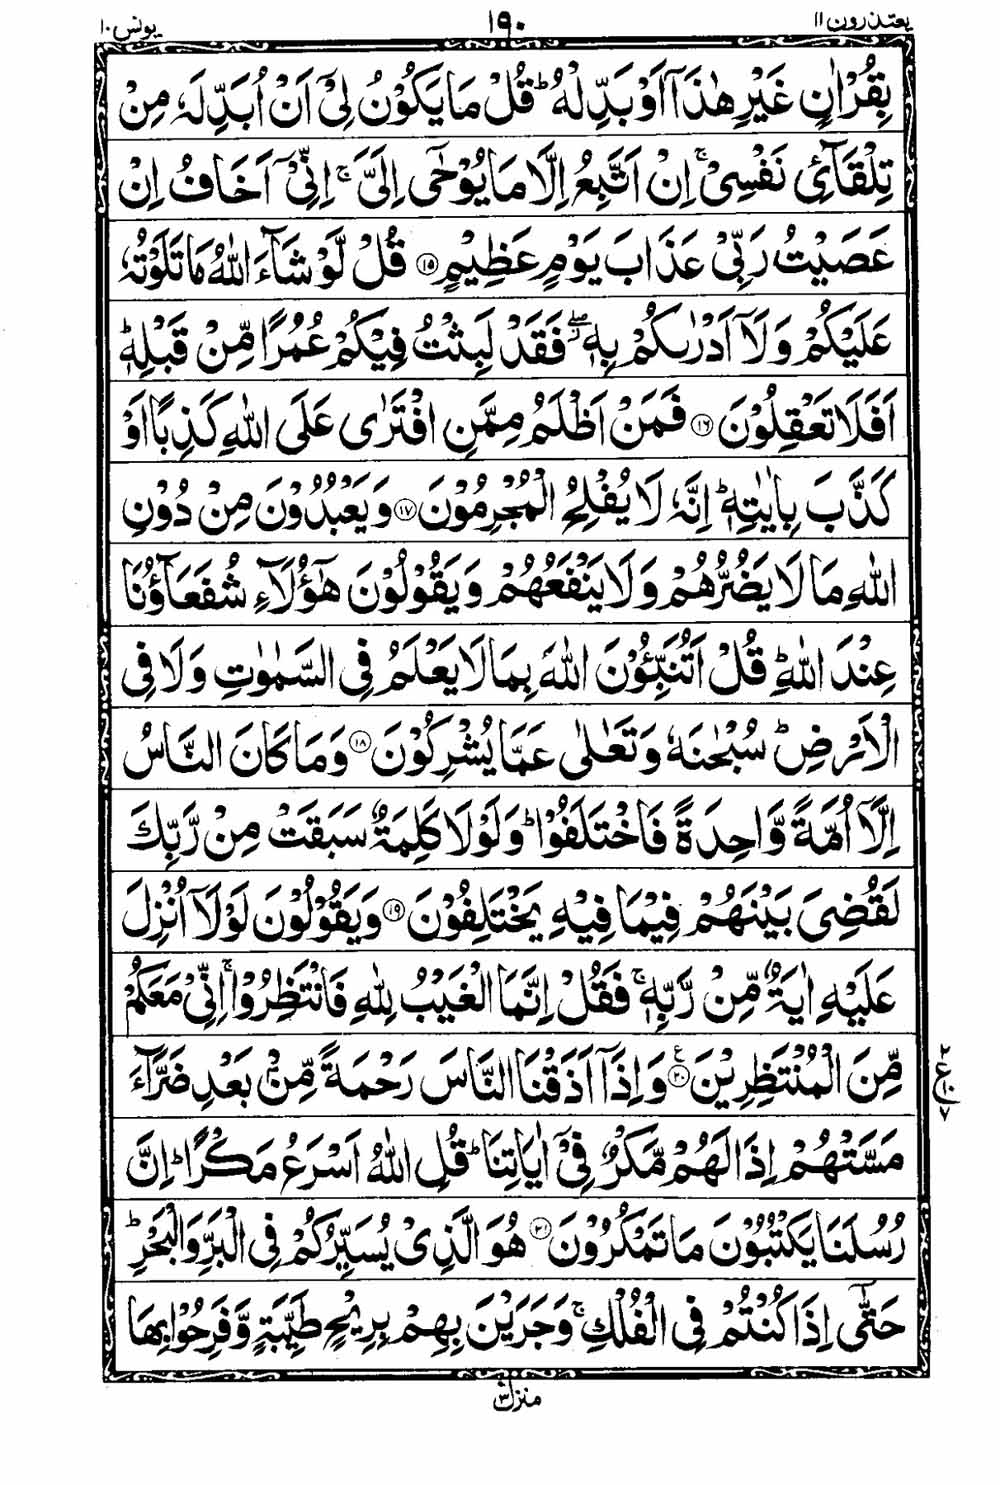 يعتذرون ١١
١٩٠
يونس ١٠
بِقُرْاٰنٍ غَيْرِ هٰذَاۤ اَوْ بَدِّلْهُ ؕ قُلْ مَا يَكُوْنُ لِىْۤ اَنْ اُبَدِّلَهٗ مِنْ
تِلْقَآئِ نَفْسِىْ ۚ اِنْ اَتَّبِعُ اِلَّا مَا يُوْحٰۤى اِلَىَّ ۚ اِنِّىْۤ اَخَافُ اِنْ
عَصَيْتُ رَبِّىْ عَذَابَ يَوْمٍ عَظِيْمٍ ۝۱۵ قُلْ لَّوْ شَآءَ اللّٰهُ مَا تَلَوْتُهٗ
عَلَيْكُمْ وَلَاۤ اَدْرٰىكُمْ بِهٖ ۖ فَقَدْ لَبِثْتُ فِيْكُمْ عُمُرًا مِّنْ قَبْلِهٖ ؕ
اَفَلَا تَعْقِلُوْنَ ۝۱۶ فَمَنْ اَظْلَمُ مِمَّنِ افْتَرٰى عَلَى اللّٰهِ كَذِبًا اَوْ
كَذَّبَ بِاٰيٰتِهٖ ؕ اِنَّهٗ لَا يُفْلِحُ الْمُجْرِمُوْنَ ۝۱۷ وَيَعْبُدُوْنَ مِنْ دُوْنِ
اللّٰهِ مَا لَا يَضُرُّهُمْ وَلَا يَنْفَعُهُمْ وَيَقُوْلُوْنَ هٰۤؤُلَآءِ شُفَعَآؤُنَا
عِنْدَ اللّٰهِ ؕ قُلْ اَتُنَبِّئُوْنَ اللّٰهَ بِمَا لَا يَعْلَمُ فِى السَّمٰوٰتِ وَلَا فِى
الْاَرْضِ ؕ سُبْحٰنَهٗ وَتَعٰلٰى عَمَّا يُشْرِكُوْنَ ۝۱۸ وَمَا كَانَ النَّاسُ
اِلَّاۤ اُمَّةً وَّاحِدَةً فَاخْتَلَفُوْا ؕ وَلَوْلَا كَلِمَةٌ سَبَقَتْ مِنْ رَّبِّكَ
لَقُضِىَ بَيْنَهُمْ فِيْمَا فِيْهِ يَخْتَلِفُوْنَ ۝۱۹ وَيَقُوْلُوْنَ لَوْلَاۤ اُنْزِلَ
عَلَيْهِ اٰيَةٌ مِّنْ رَّبِّهٖ ۚ فَقُلْ اِنَّمَا الْغَيْبُ لِلّٰهِ فَانْتَظِرُوْا ۚ اِنِّىْ مَعَكُمْ
مِّنَ الْمُنْتَظِرِيْنَ ۝۲۰ وَاِذَاۤ اَذَقْنَا النَّاسَ رَحْمَةً مِّنْۢ بَعْدِ ضَرَّآءَ
مَسَّتْهُمْ اِذَا لَهُمْ مَّكْرٌ فِىْۤ اٰيَاتِنَا ؕ قُلِ اللّٰهُ اَسْرَعُ مَكْرًا ؕ اِنَّ
رُسُلَنَا يَكْتُبُوْنَ مَا تَمْكُرُوْنَ ۝۲۱ هُوَ الَّذِىْ يُسَيِّرُكُمْ فِى الْبَرِّ وَالْبَحْرِ ؕ
حَتّٰۤى اِذَا كُنْتُمْ فِى الْفُلْكِ ۚ وَجَرَيْنَ بِهِمْ بِرِيْحٍ طَيِّبَةٍ وَّفَرِحُوْا بِهَا
منزل ۳